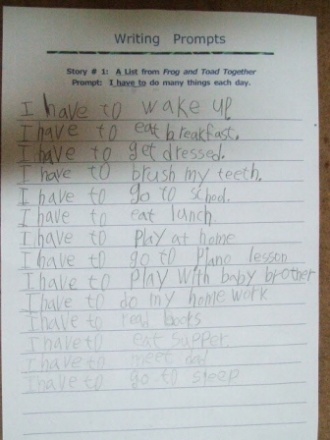 Writing Prompts
Story # 1: A List from Frog and Toad Together
Prompt: I have to do many things each day.
I have to wake up
I have to eat breakfast.
I have to get dressed.
I have to brush my teeth.
I have to go to school.
I have to eat lunch
I have to play at home
I have to go to Piano lesson
I have to play with baby brother
I have to do my home work
I have to read books
I have to eat supper
I have to meet dad
I have to go to sleep